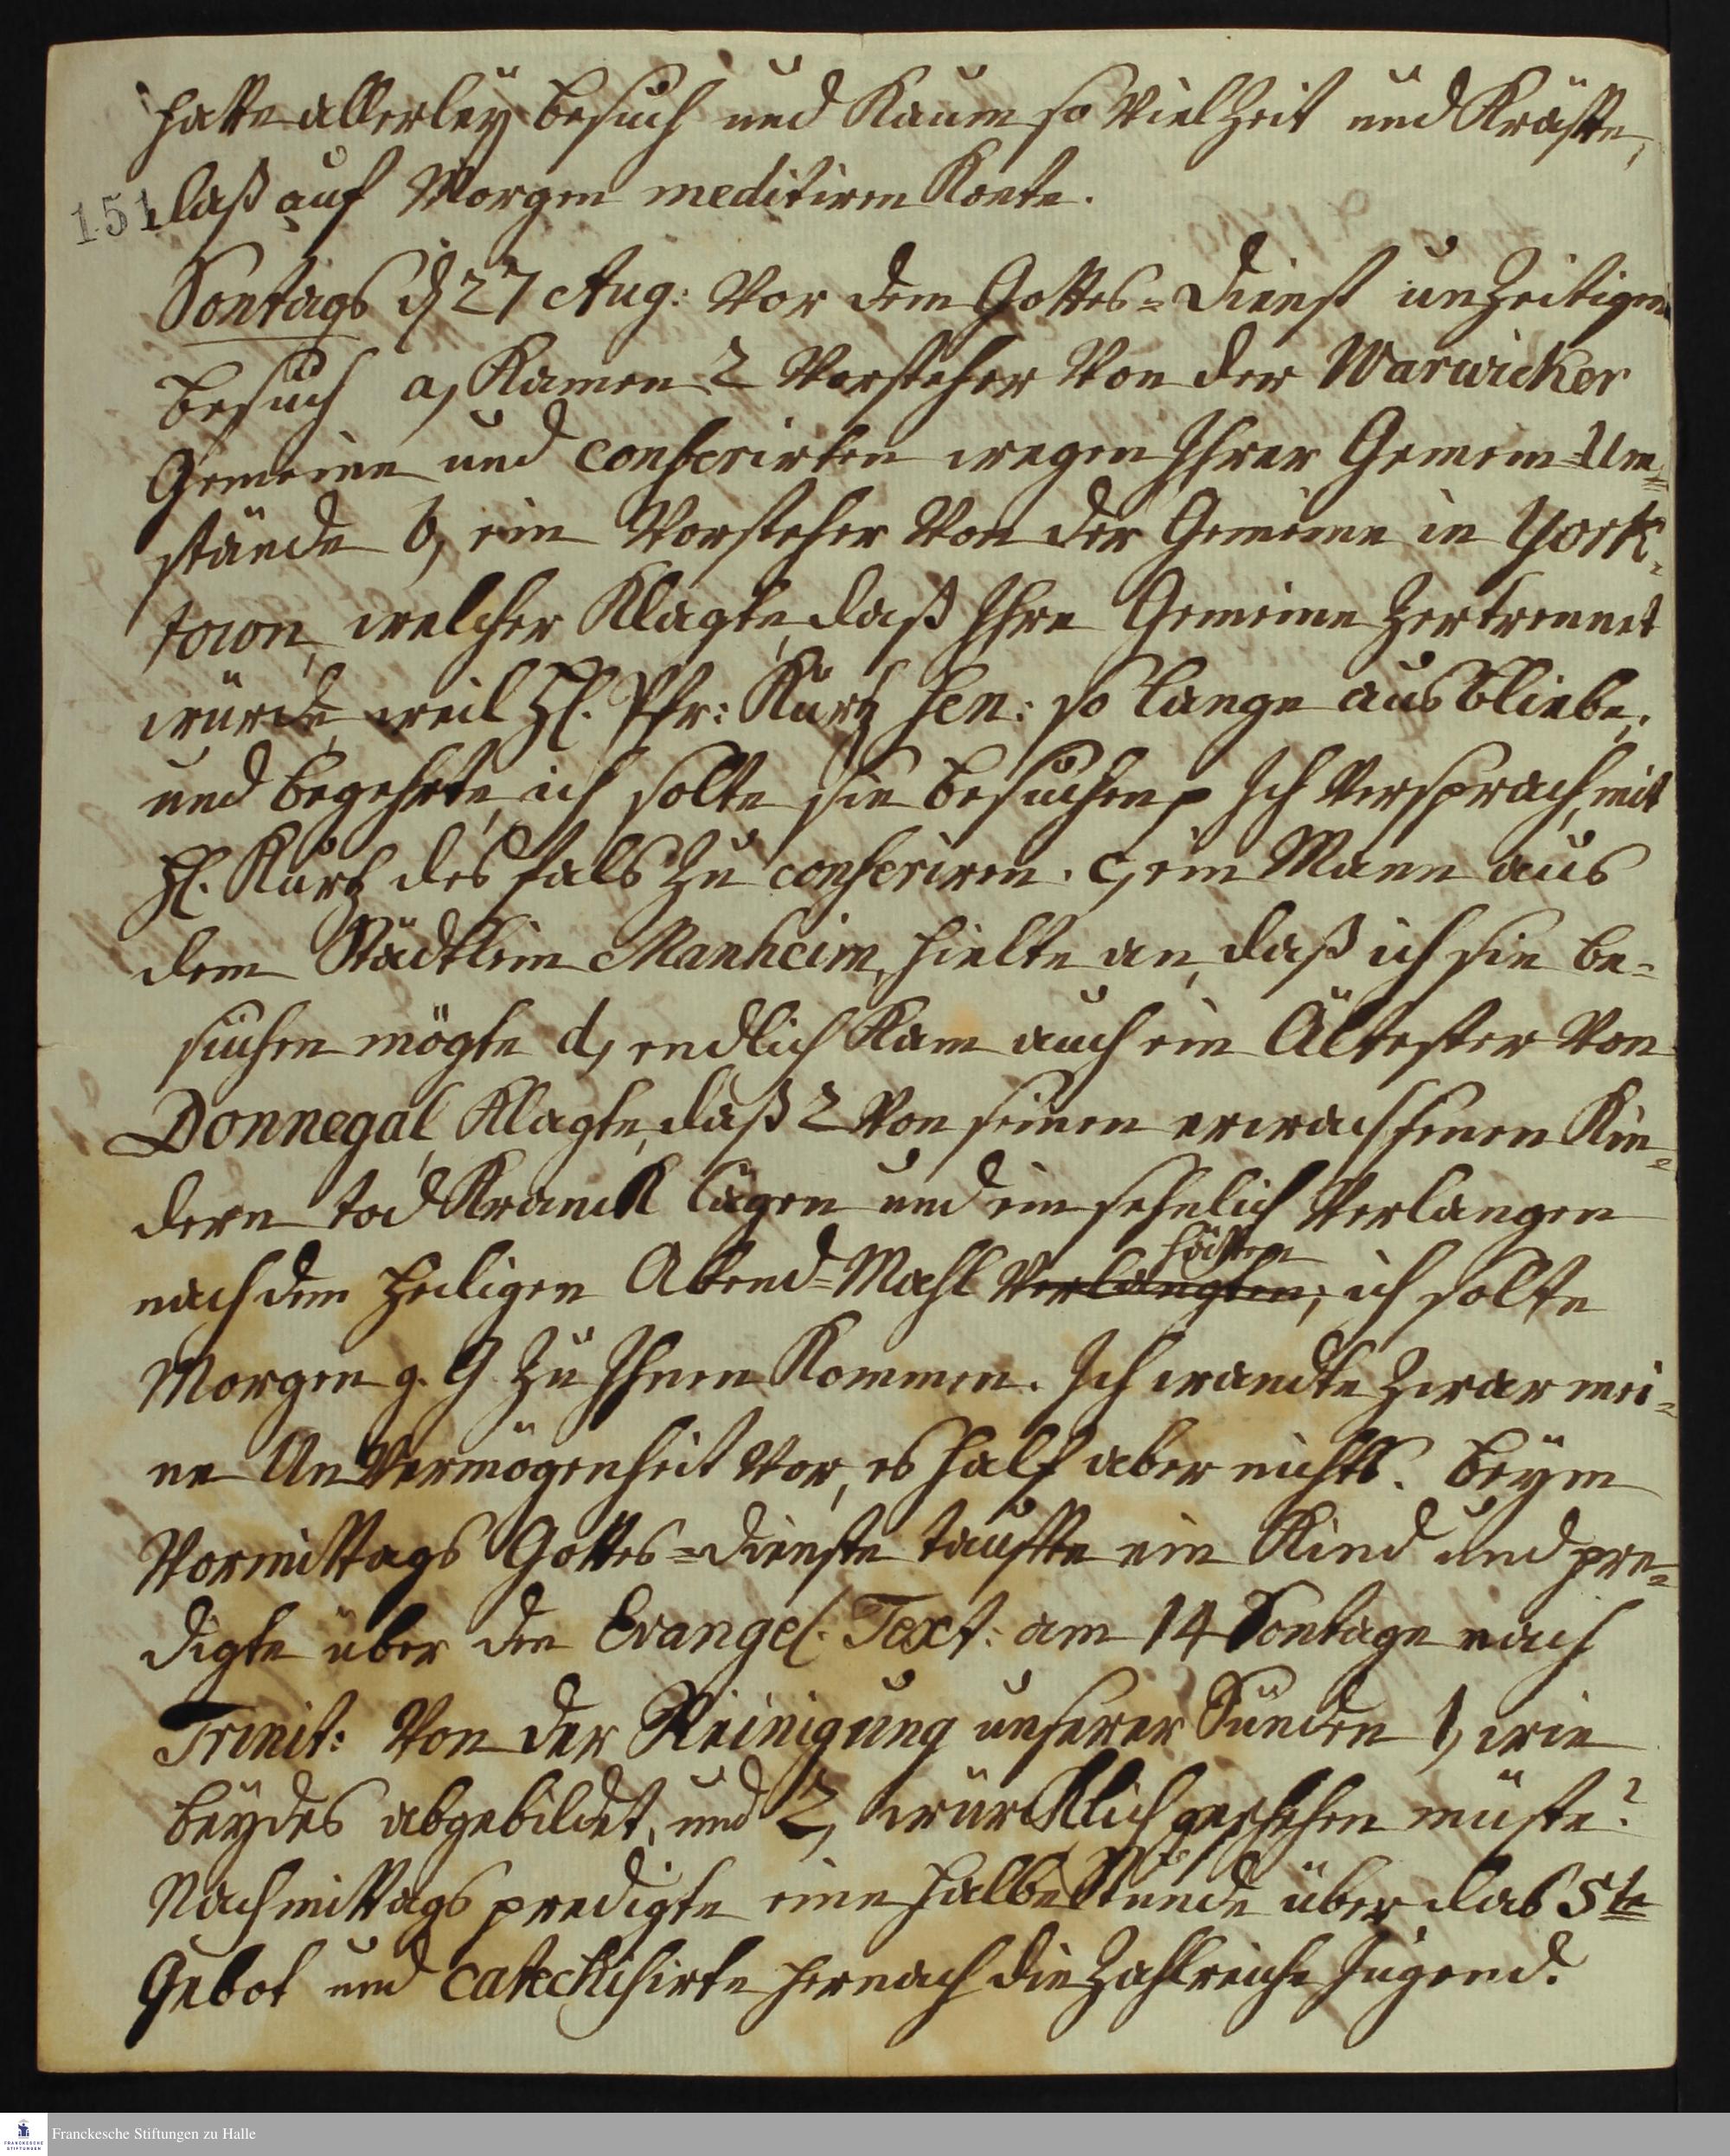 hatte allerley Besuch und Kaum so viel Zeit und Kräfte,
151 daß auf Morgen meditiren Konte.
Sontags d 27 Aug: Vor dem Gottes=Dienst unzeitigen
Besuch a, Kamen 2 Vorsteher von der Warwicker
Gemeine und conferirten wegen Ihrer Gemein=Um=
stände b, ein Vorsteher von der Gemeine in York=
town, welcher Klagte, daß Ihre Gemeine zertrennet
würde, weil H. Pfr: Kurtz Sen: so lange ausbliebe,
und begehrte, ich solte sie besuchen, Ich versprach, mit
H. Kurtz desfals zu conferiren. c, ein Mann aus
dem Städtlein Manheim, hielte an, daß ich sie be=
suchen mögte d, endlich Kam auch ein Ältester von
Donnegal, Klagte, daß 2 von seinen erwachsenen Kin=
dern tod Kranck lägen und ein sehnlich Verlangen
hätten
nach dem Heiligen Abend=Mahl verlangten; ich solte
Morgen g. G. zu Ihnen Kommen. Ich wandte zwar mei=
ne UnVermögenheit vor, es half aber nichts. Beym
Vormittags Gottes=Dienste taufte ein Kind und pre=
digte über den Evangel. Text: am 14 Sontage nach
Trinit: Von der Reinigung unserer Sünden 1, wie
beydes abgebildet, und 2, würcklich geschehen müste?
Nachmittags predigte eine halbe Stunde über das 5te
Gebot und catechisirte hernach die Zahlreiche Jugend.
Franckesche Stiftungen zu Halle
FRANCKESCHE
STIFTUNGEN